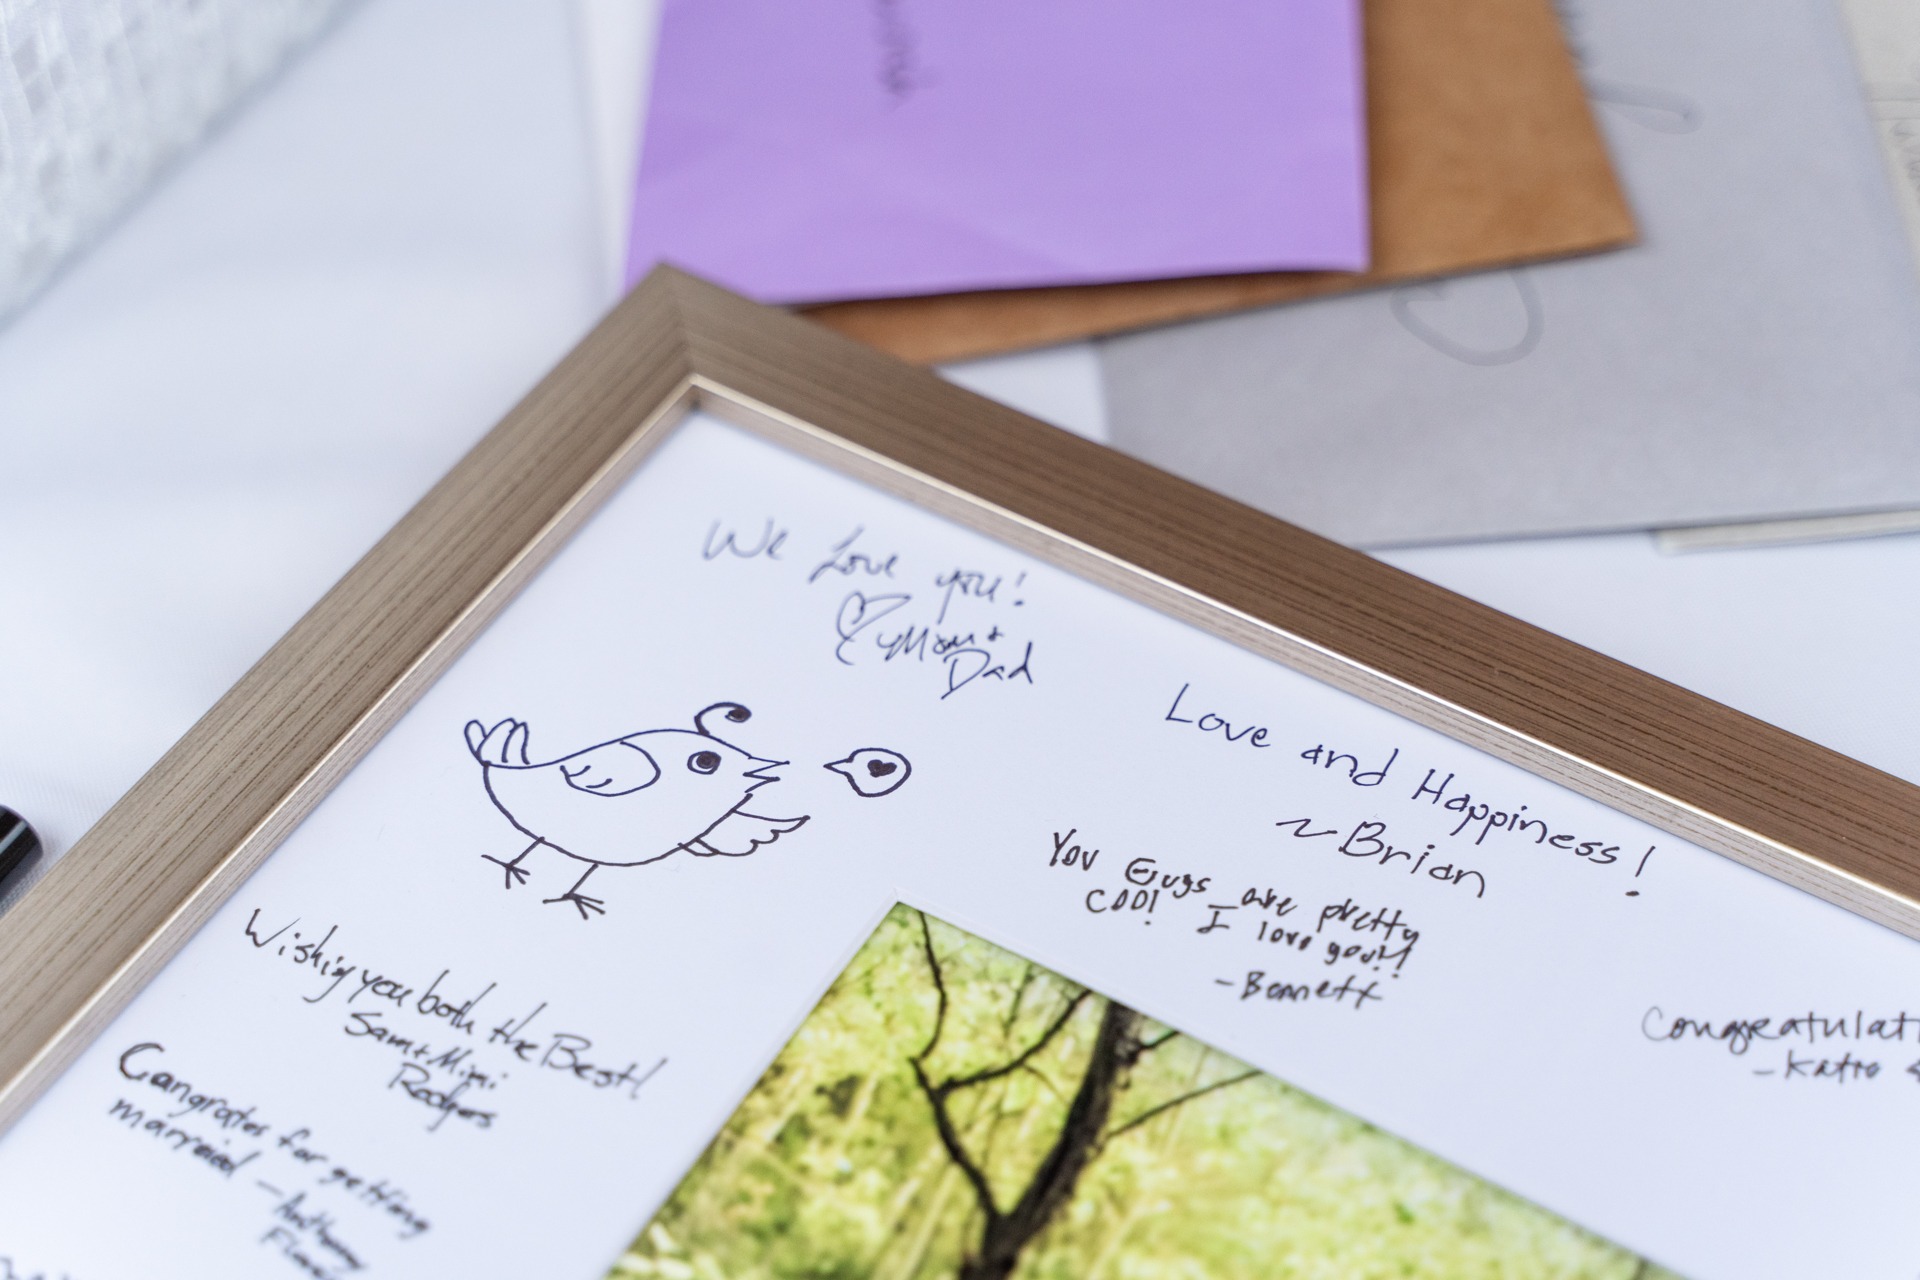 We Love you!
Mom +
Dad
Love and Happiness!
~Brian
You Guys are pretty
cool! I love you!!
-Bennett
Wishing you both the Best!
Sam + Mimi
Rodgers
Congrats for getting
married - Anthony
Congratulat
- Katie &